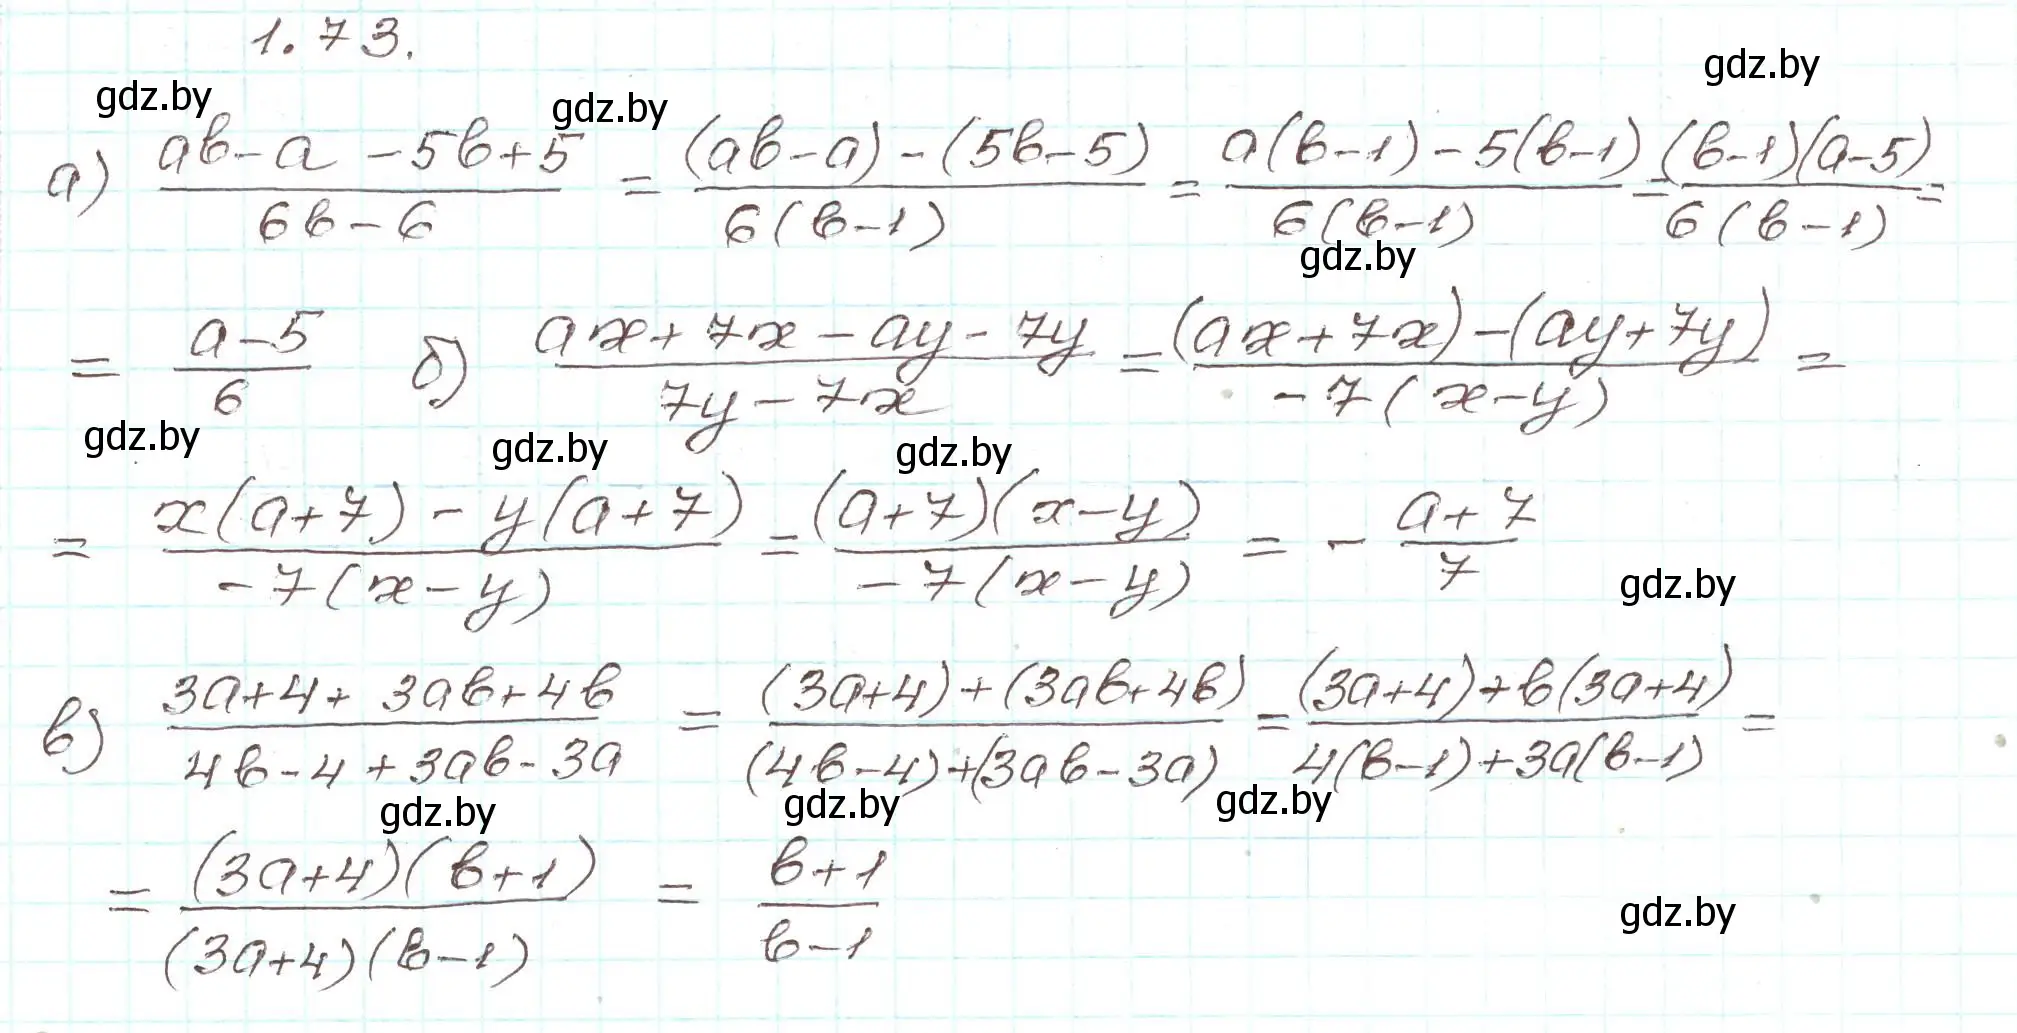 1.73.
gdz.by gdz.by gdz.by
а) (ab - a - 5b + 5)/(6b - 6) = ((ab - a) - (5b - 5))/(6(b - 1)) = (a(b - 1) - 5(b - 1))/(6(b - 1)) = ((b - 1)(a - 5))/(6(b - 1)) =
gdz.by
= (a - 5)/6 б) (ax + 7x - ay - 7y)/(7y - 7x) = ((ax + 7x) - (ay + 7y))/(-7(x - y)) =
gdz.by gdz.by gdz.by
= (x(a + 7) - y(a + 7))/(-7(x - y)) = ((a + 7)(x - y))/(-7(x - y)) = - (a + 7)/7
gdz.by
в) (3a + 4 + 3ab + 4b)/(4b - 4 + 3ab - 3a) = ((3a + 4) + (3ab + 4b))/((4b - 4) + (3ab - 3a)) = ((3a + 4) + b(3a + 4))/(4(b - 1) + 3a(b - 1)) =
gdz.by gdz.by gdz.by
= ((3a + 4)(b + 1))/((3a + 4)(b - 1)) = (b + 1)/(b - 1)
gdz.by